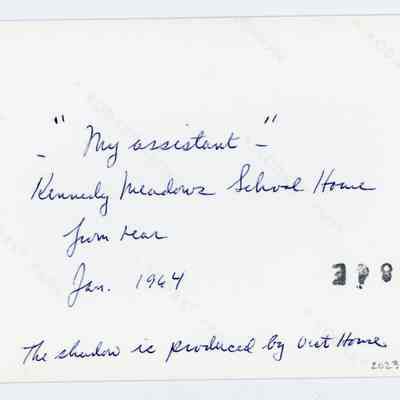 - "My assistant" -
Kennedy Meadows School House
from rear
Jan. 1964
398
The shadow is produced by Out House
2023